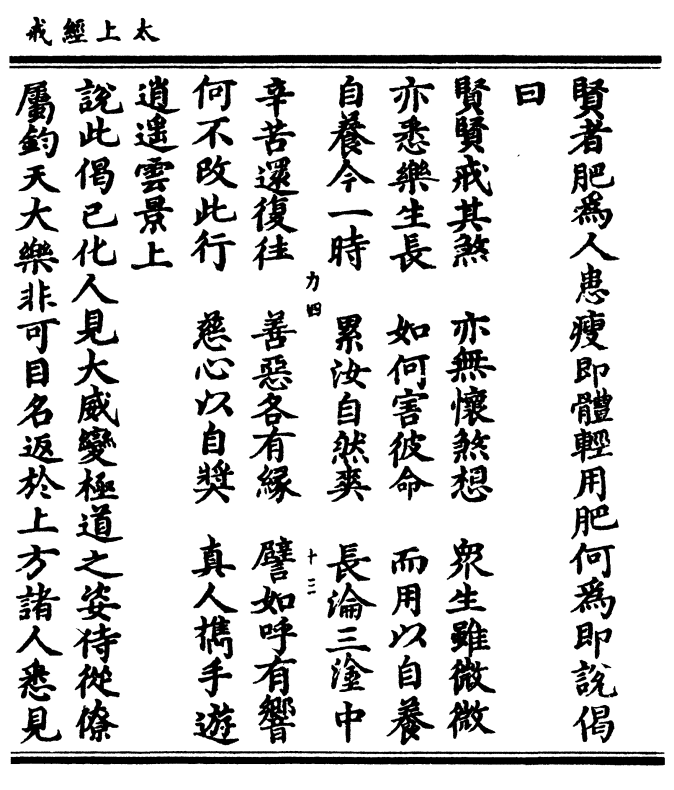 太上經戒
賢者肥爲人患瘦即體輕用肥何爲即說偈
曰
賢賢戒其煞 亦無懷煞想 衆生雖微微
亦悉樂生長 如何害彼命 而用以自養
自養今一時 累汝自然爽 長淪三塗中
力四 十三
辛苦還復往 善惡各有緣 譬如呼有響
何不改此行 慈心以自獎 真人攜手遊
逍遥雲景上
說此偈已化人見大威變極道之姿侍從僚
屬鈞天大樂非可目名返於上方諸人悉見